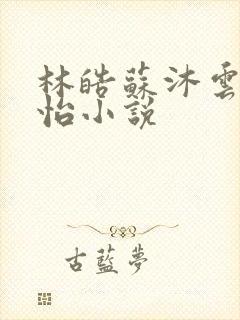 林皓蘇沐雲
怡小說
古藍夢